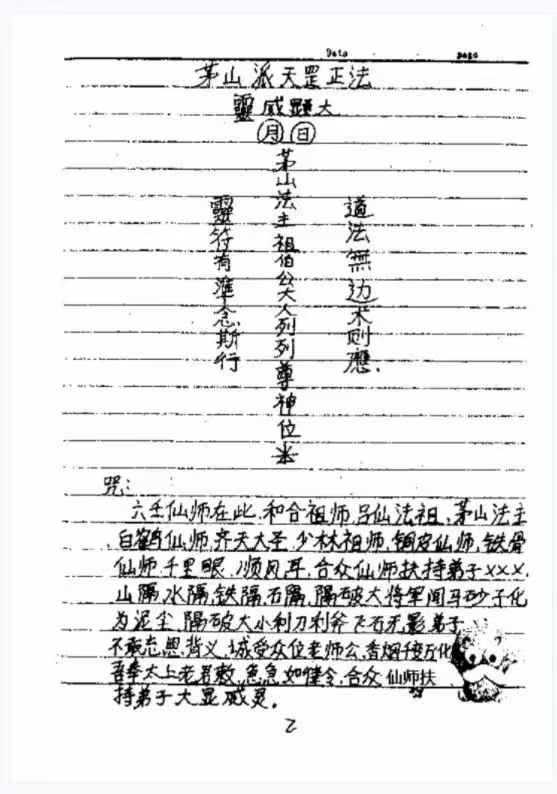 Data
page
茅山派天罡正法
靈威顕大
月 日
茅山法主祖伯公大人列列尊神位
道法無边术则應.
靈符有準念斯行
咒:
六壬仙师在此,和合祖师,吕仙法祖,茅山法主
白鹤仙师,齐天大圣,少林祖师,铜皮仙师,铁骨
仙师,千里眼,顺风耳,合众仙师扶持弟子×××,
山隔水隔,铁隔,石隔,隔破大将军闻马砂子化
为泥尘,隔破大小利刀利斧飞石无影,弟子
不敢忘恩背义,诚受众位老师公,香烟千变万化
吾奉太上老君敕,急急如律令,合众仙师扶
持弟子大显威灵.
2